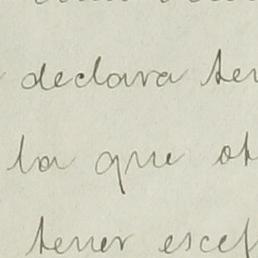 declara ten
la que ot
tener escep